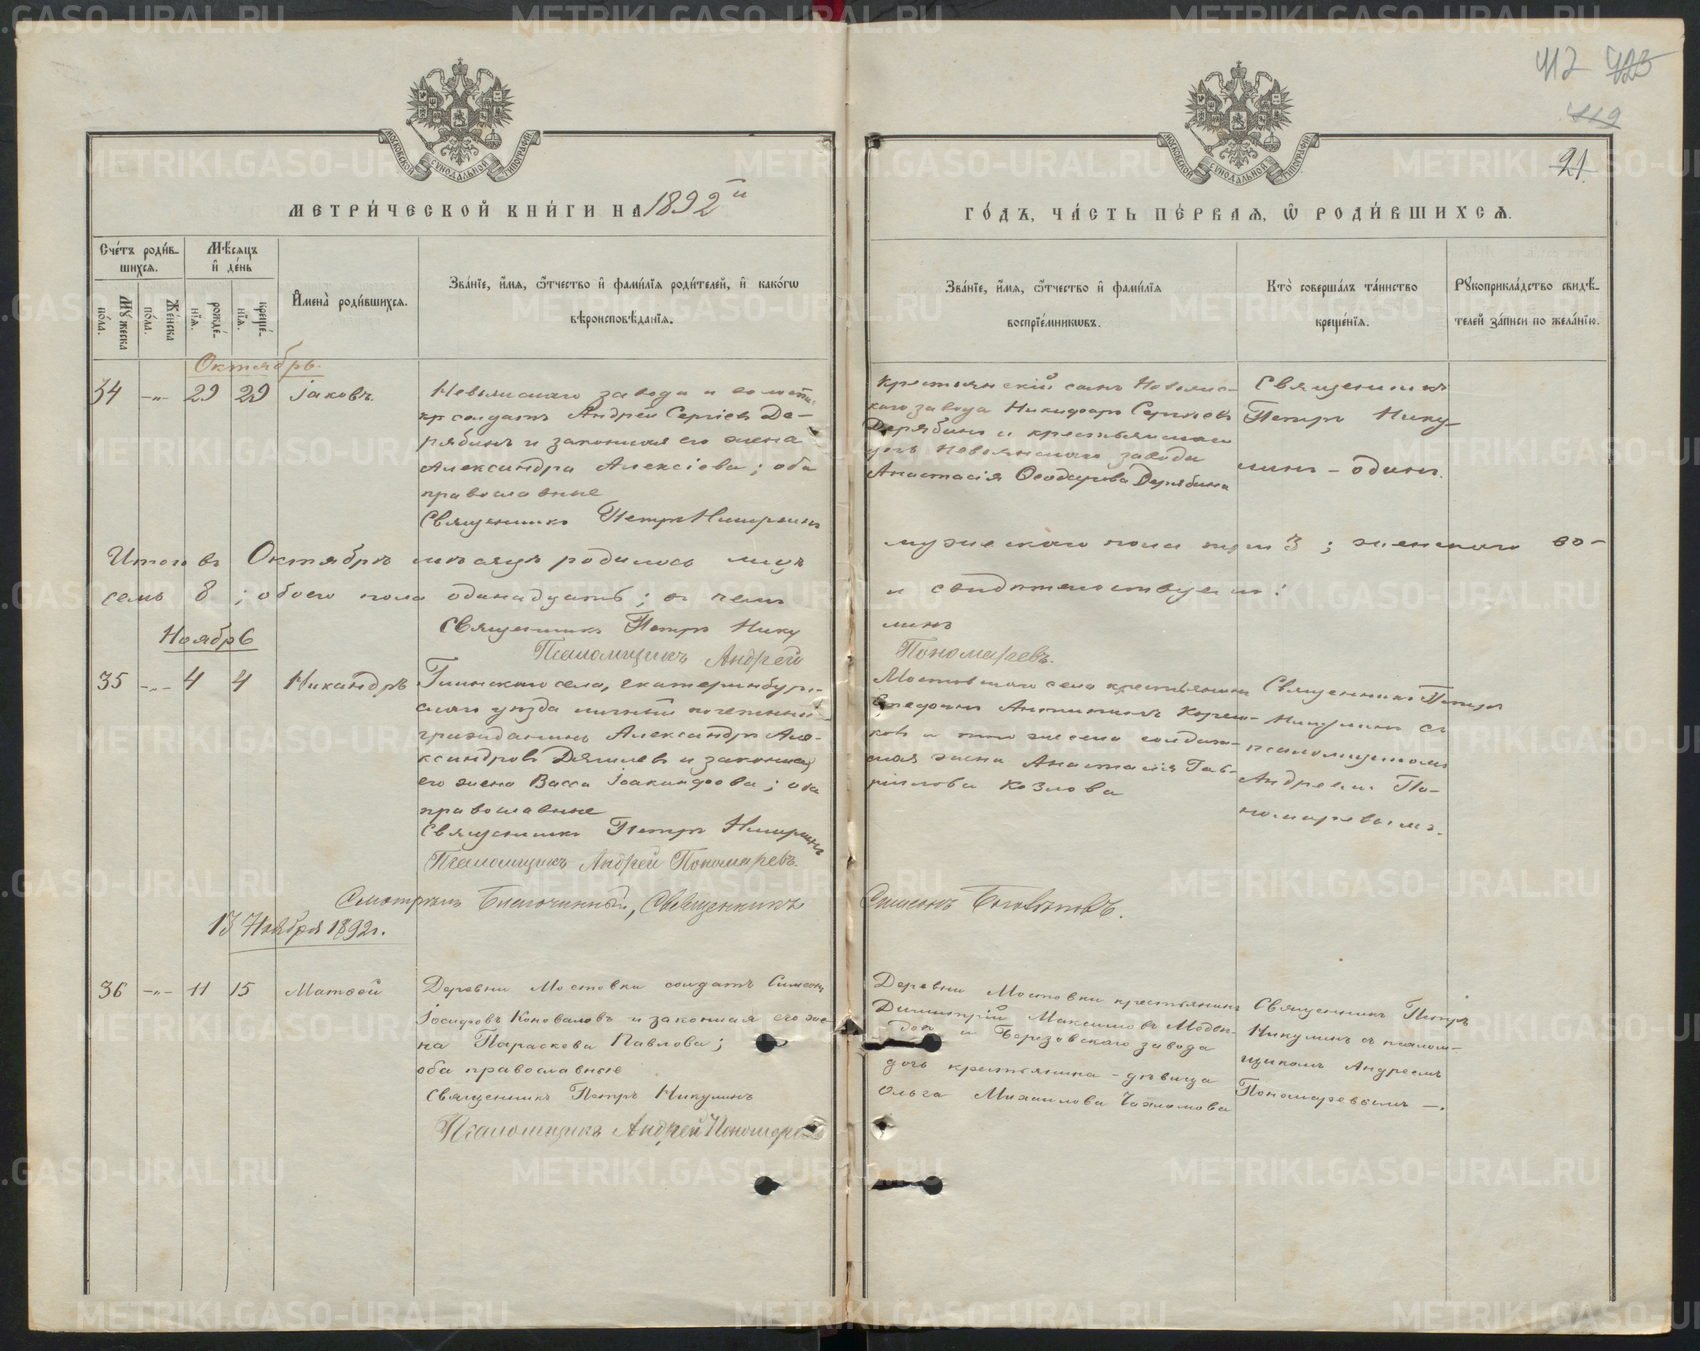 412 423
412
21
МЕТРИ́ЧЕСКОЙ КНИ́ГИ НА 1892й
ГО́ДЪ, ЧА́СТЬ ПЕ́РВАЯ, Ѡ РОДИ́ВШИХСЯ.
Сче́тъ роди́в-
шихся.
Мѣсяцъ
и де́нь
Мꙋжеска
по́ла.
Же́нска
по́ла.
рожде́-
нїя.
креще́-
нїя.
Имена̀ роди́вшихся.
Зва́нїе, и́мя, ѻ́тчество и фами́лїя роди́телей, и како́гѡ
вѣроисповѣ́данїя.
Зва́нїе, и́мя, ѻ́тчество и фами́лїя
воспрїе́мникѡвъ.
Кто̀ соверша́лъ та́инство
креще́нїя.
Рꙋкоприкла́дство свидѣ́-
телей за́писи по жела́нїю.
Октябрь.
34 -"- 29 29 Іаковъ.
Невьянскаго завода и волости
кр солдатъ Андрей Сергіевъ Де-
рябинъ и законная его жена
Александра Алексіева; оба
православные
Священникъ Петръ Никулинъ
Крестьянскій сынъ Невьянс-
каго завода Никифоръ Сергіевъ
Дерябинъ и крестьянская
дочь Невьянскаго завода
Анастасія Ѳеодорова Дерябина
Священникъ
Петръ Нику-
линъ - одинъ.
Итого въ Октябрѣ мѣсяцѣ родилось мужескаго пола три 3; женскаго во-
семь 8; обоего пола одинадцать; въ чемъ и свидѣтельствуемъ:
Священникъ Петръ Никулинъ
Псаломщикъ Андрей Пономаревъ.
Ноябрь
35 -"- 4 4 Никандръ
Глинскаго села, Екатеринбург-
скаго уѣзда личный почетный
гражданинъ Александръ Але-
ксандровъ Дягилевъ и законная
его жена Васса Іоакинфова; оба
православные
Священникъ Петръ Никулинъ
Псаломщикъ Андрей Пономаревъ.
Мостовскаго села крестьянинъ
Антипинъ
ковъ и того же села солдат-
ская жена Анастасія Гав-
ріилова Козлова
Священникъ Петръ
Никулинъ съ
псаломщикомъ
Андреемъ По-
номаревымъ.
Смотрѣлъ Благочинный, Священникъ Симеонъ
13 Ноября 1892 г.
36 -"- 11 15 Матѳей
Деревни Мостовки солдатъ Симеонъ
Іосифовъ Коноваловъ и законная его же-
на Параскева Павлова;
оба православные
Священникъ Петръ Никулинъ
Псаломщикъ Андрей Пономаревъ
Деревни Мостовки крестьянинъ
Димитрій Максимовъ Медвѣ-
и Березовскаго завода
дочь крестьянина - дѣвица
Ольга Михаилова
Священникъ Петръ
Никулинъ съ псалом-
щикомъ Андреемъ
Пономаревымъ -.